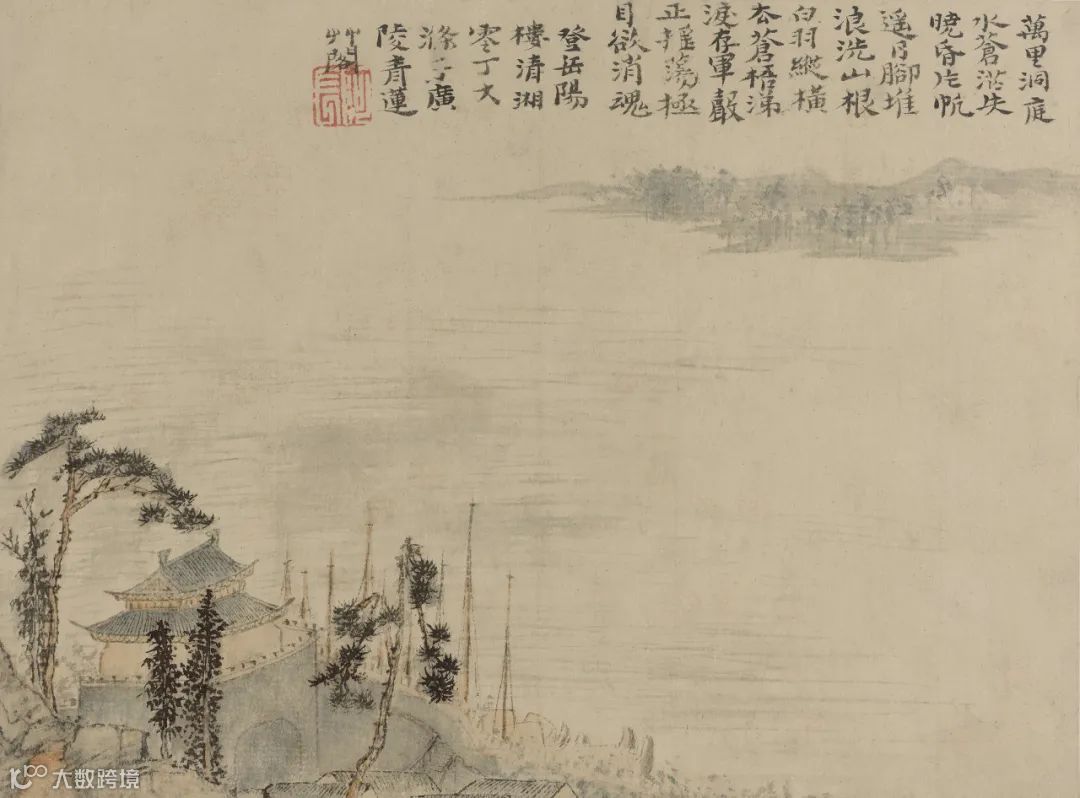 萬里洞庭
水蒼茫失
曉昏片帆
遥日腳堆
浪洗山根
白羽縱橫
去蒼梧涕
淚存軍聲
正搖蕩極
目欲消魂
登岳陽
樓清湘
零丁大
滌子廣
陵青蓮
艸閣
大数跨境